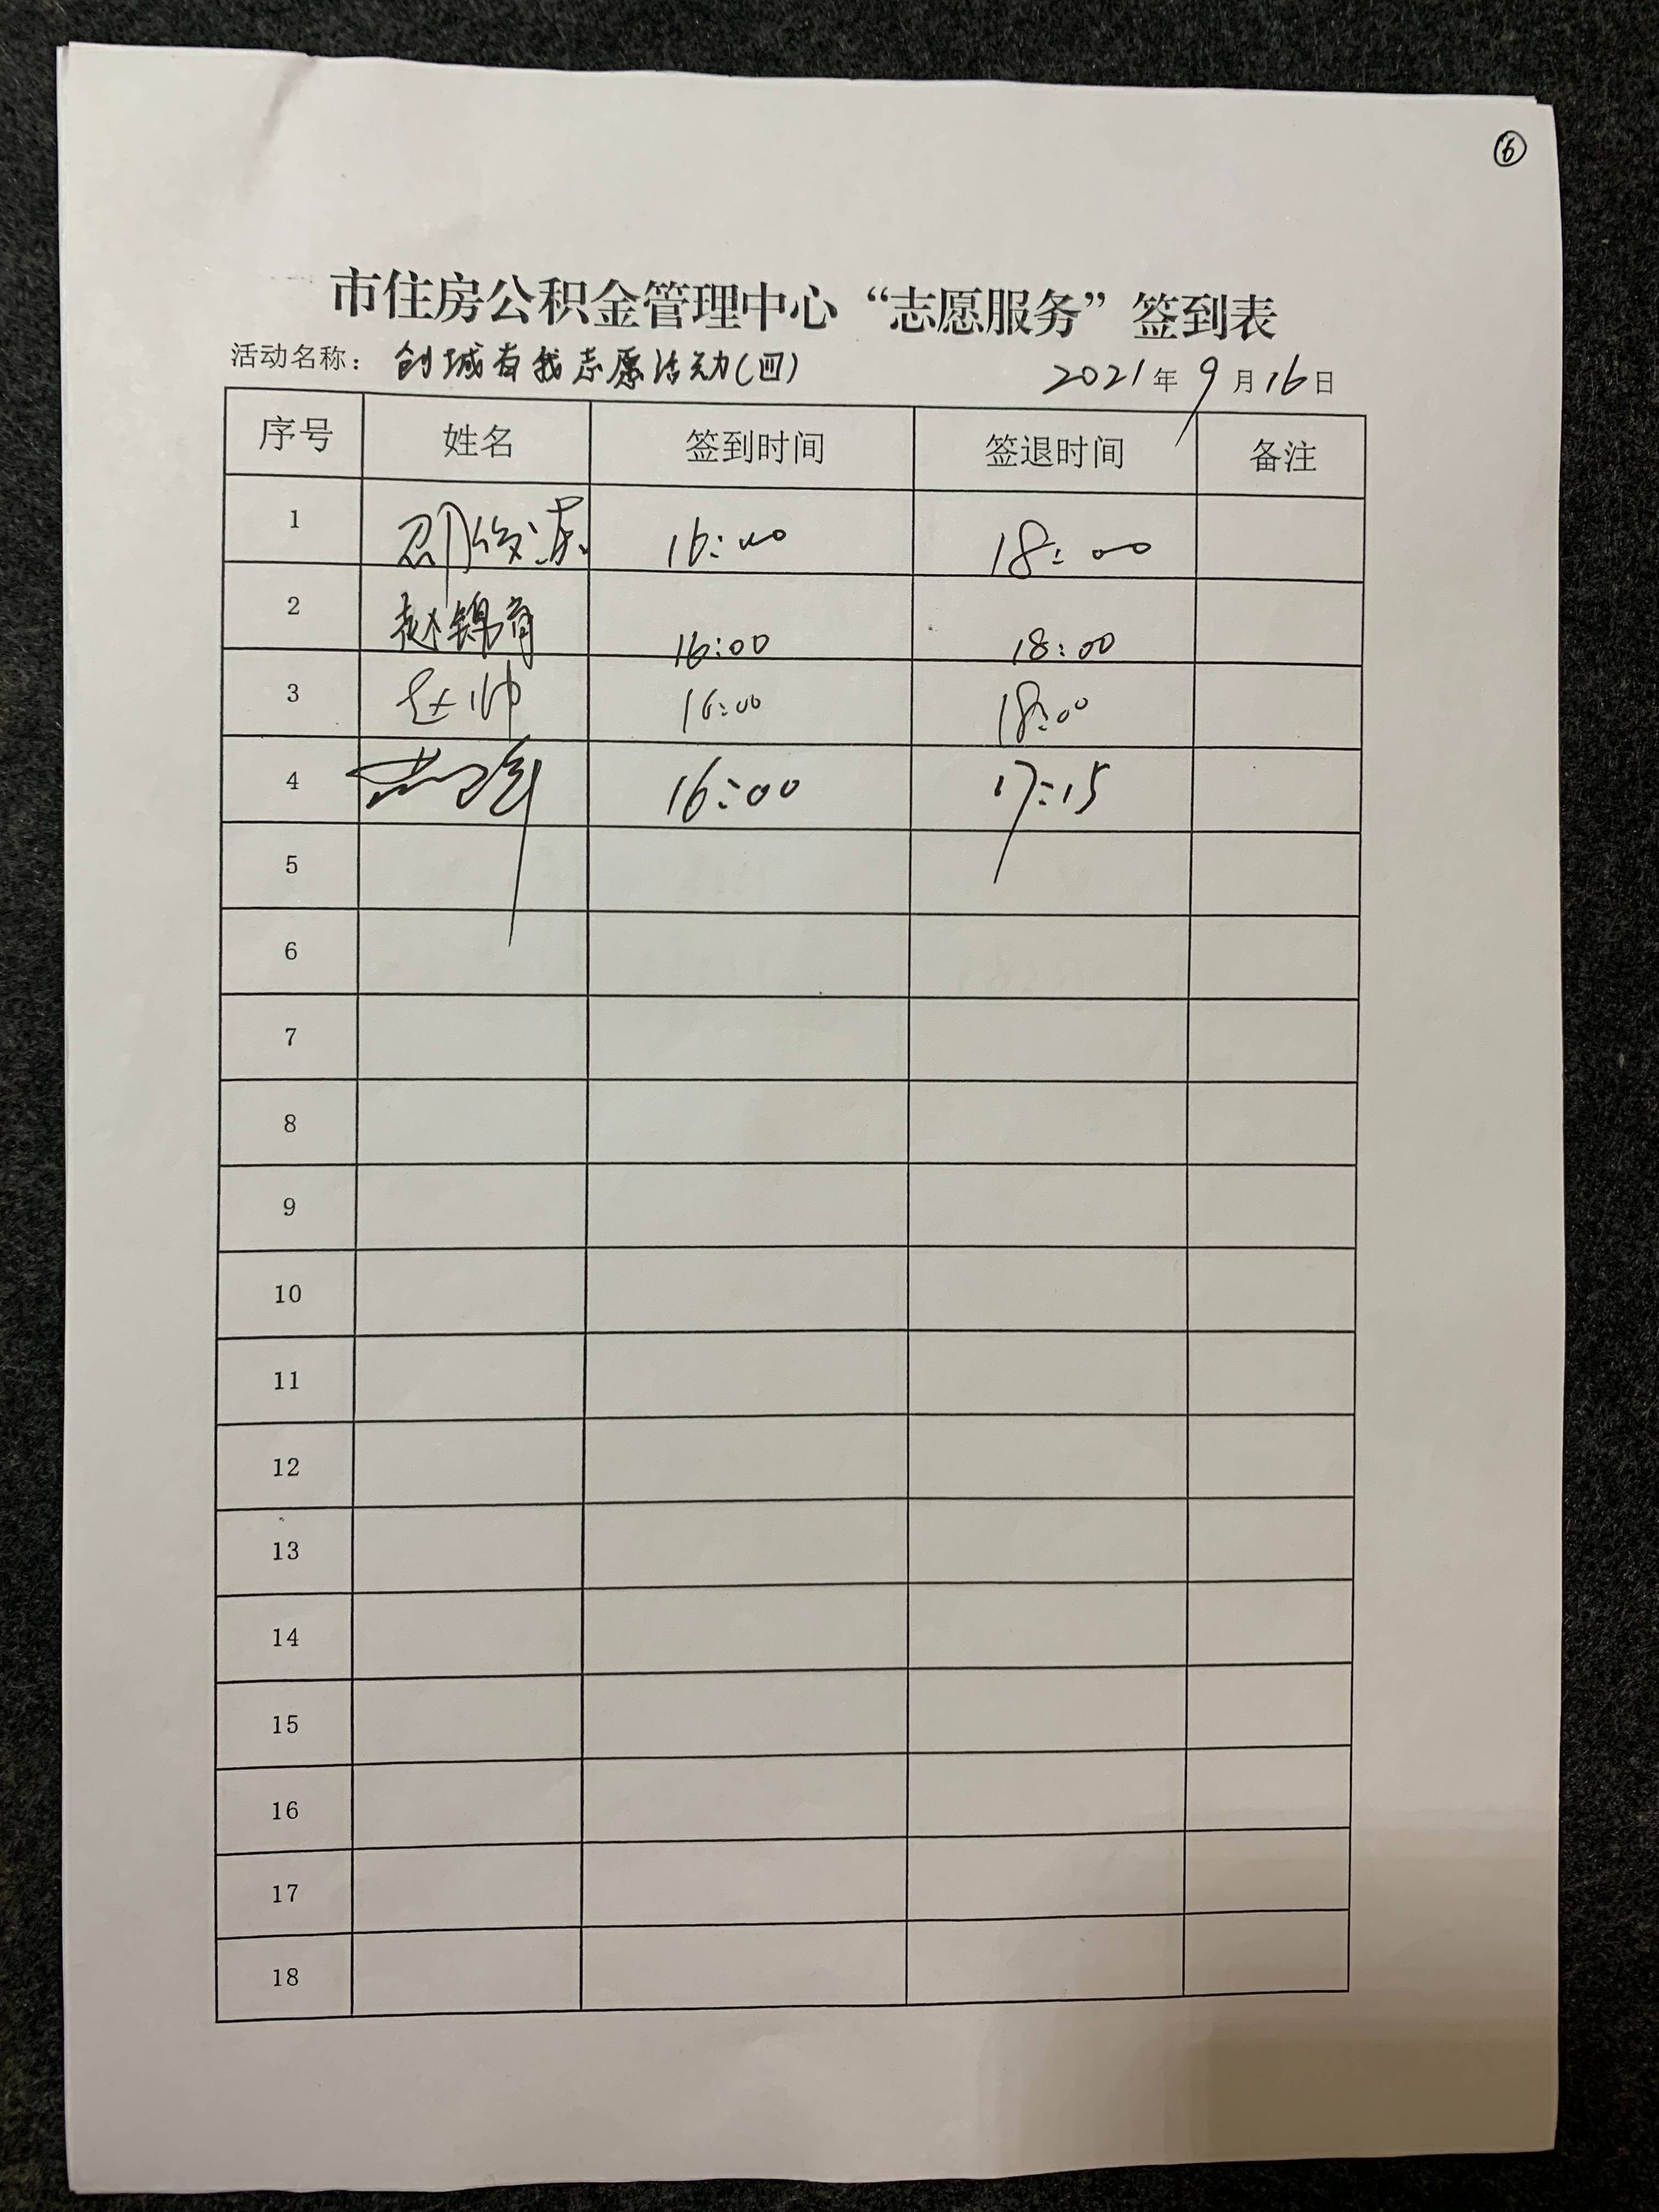 ⑥
市住房公积金管理中心“志愿服务”签到表
活动名称： 创城有我志愿活动(四) 2021年9月16日
序号 姓名 签到时间 签退时间 备注
1 16:00 18:00
2 赵锦育 16:00 18:00
3 赵帅 16:00 18:00
4 16:00 17:15
5
6
7
8
9
10
11
12
13
14
15
16
17
18